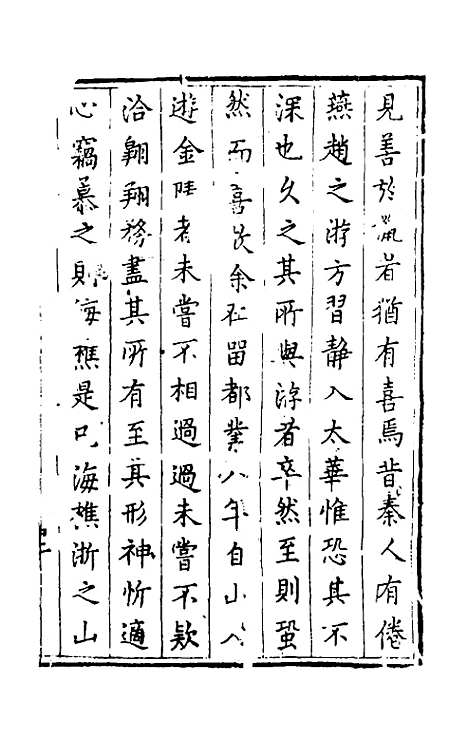 見善於氣者猶有喜焉昔秦人有倦
燕趙之游方習靜入太華惟恐其不
深也久之其所與游者卒然至則蛩
然而喜炭余在留都業八年自山人
遊金陵者未嘗不相過過未嘗不欵
洽翺翔務盡其所有至其形神忻適
心竊慕之則海樵是已海樵浙之山